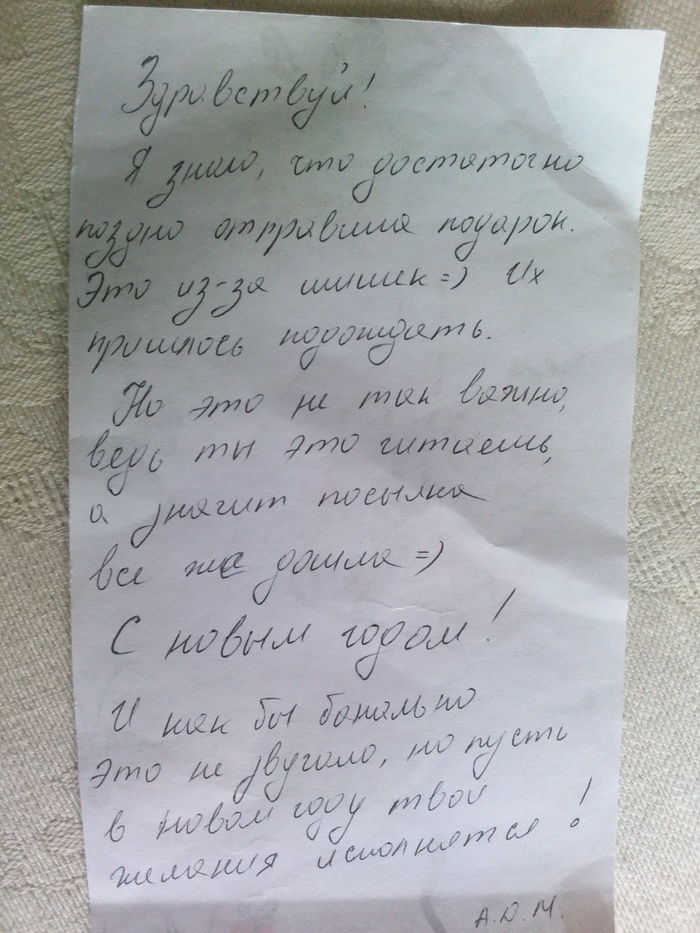 Здравствуй!
Я знаю, что достаточно
поздно отправила подарок.
Это из-за шишек=) Их
пришлось подождать.
Но это не так важно,
ведь ты это читаешь,
а значит посылка
все же дошла=)
С новым годом!
И как бы банально
это не звучало, но пусть
в новом году твои
желания исполнятся!
А.Д.М.